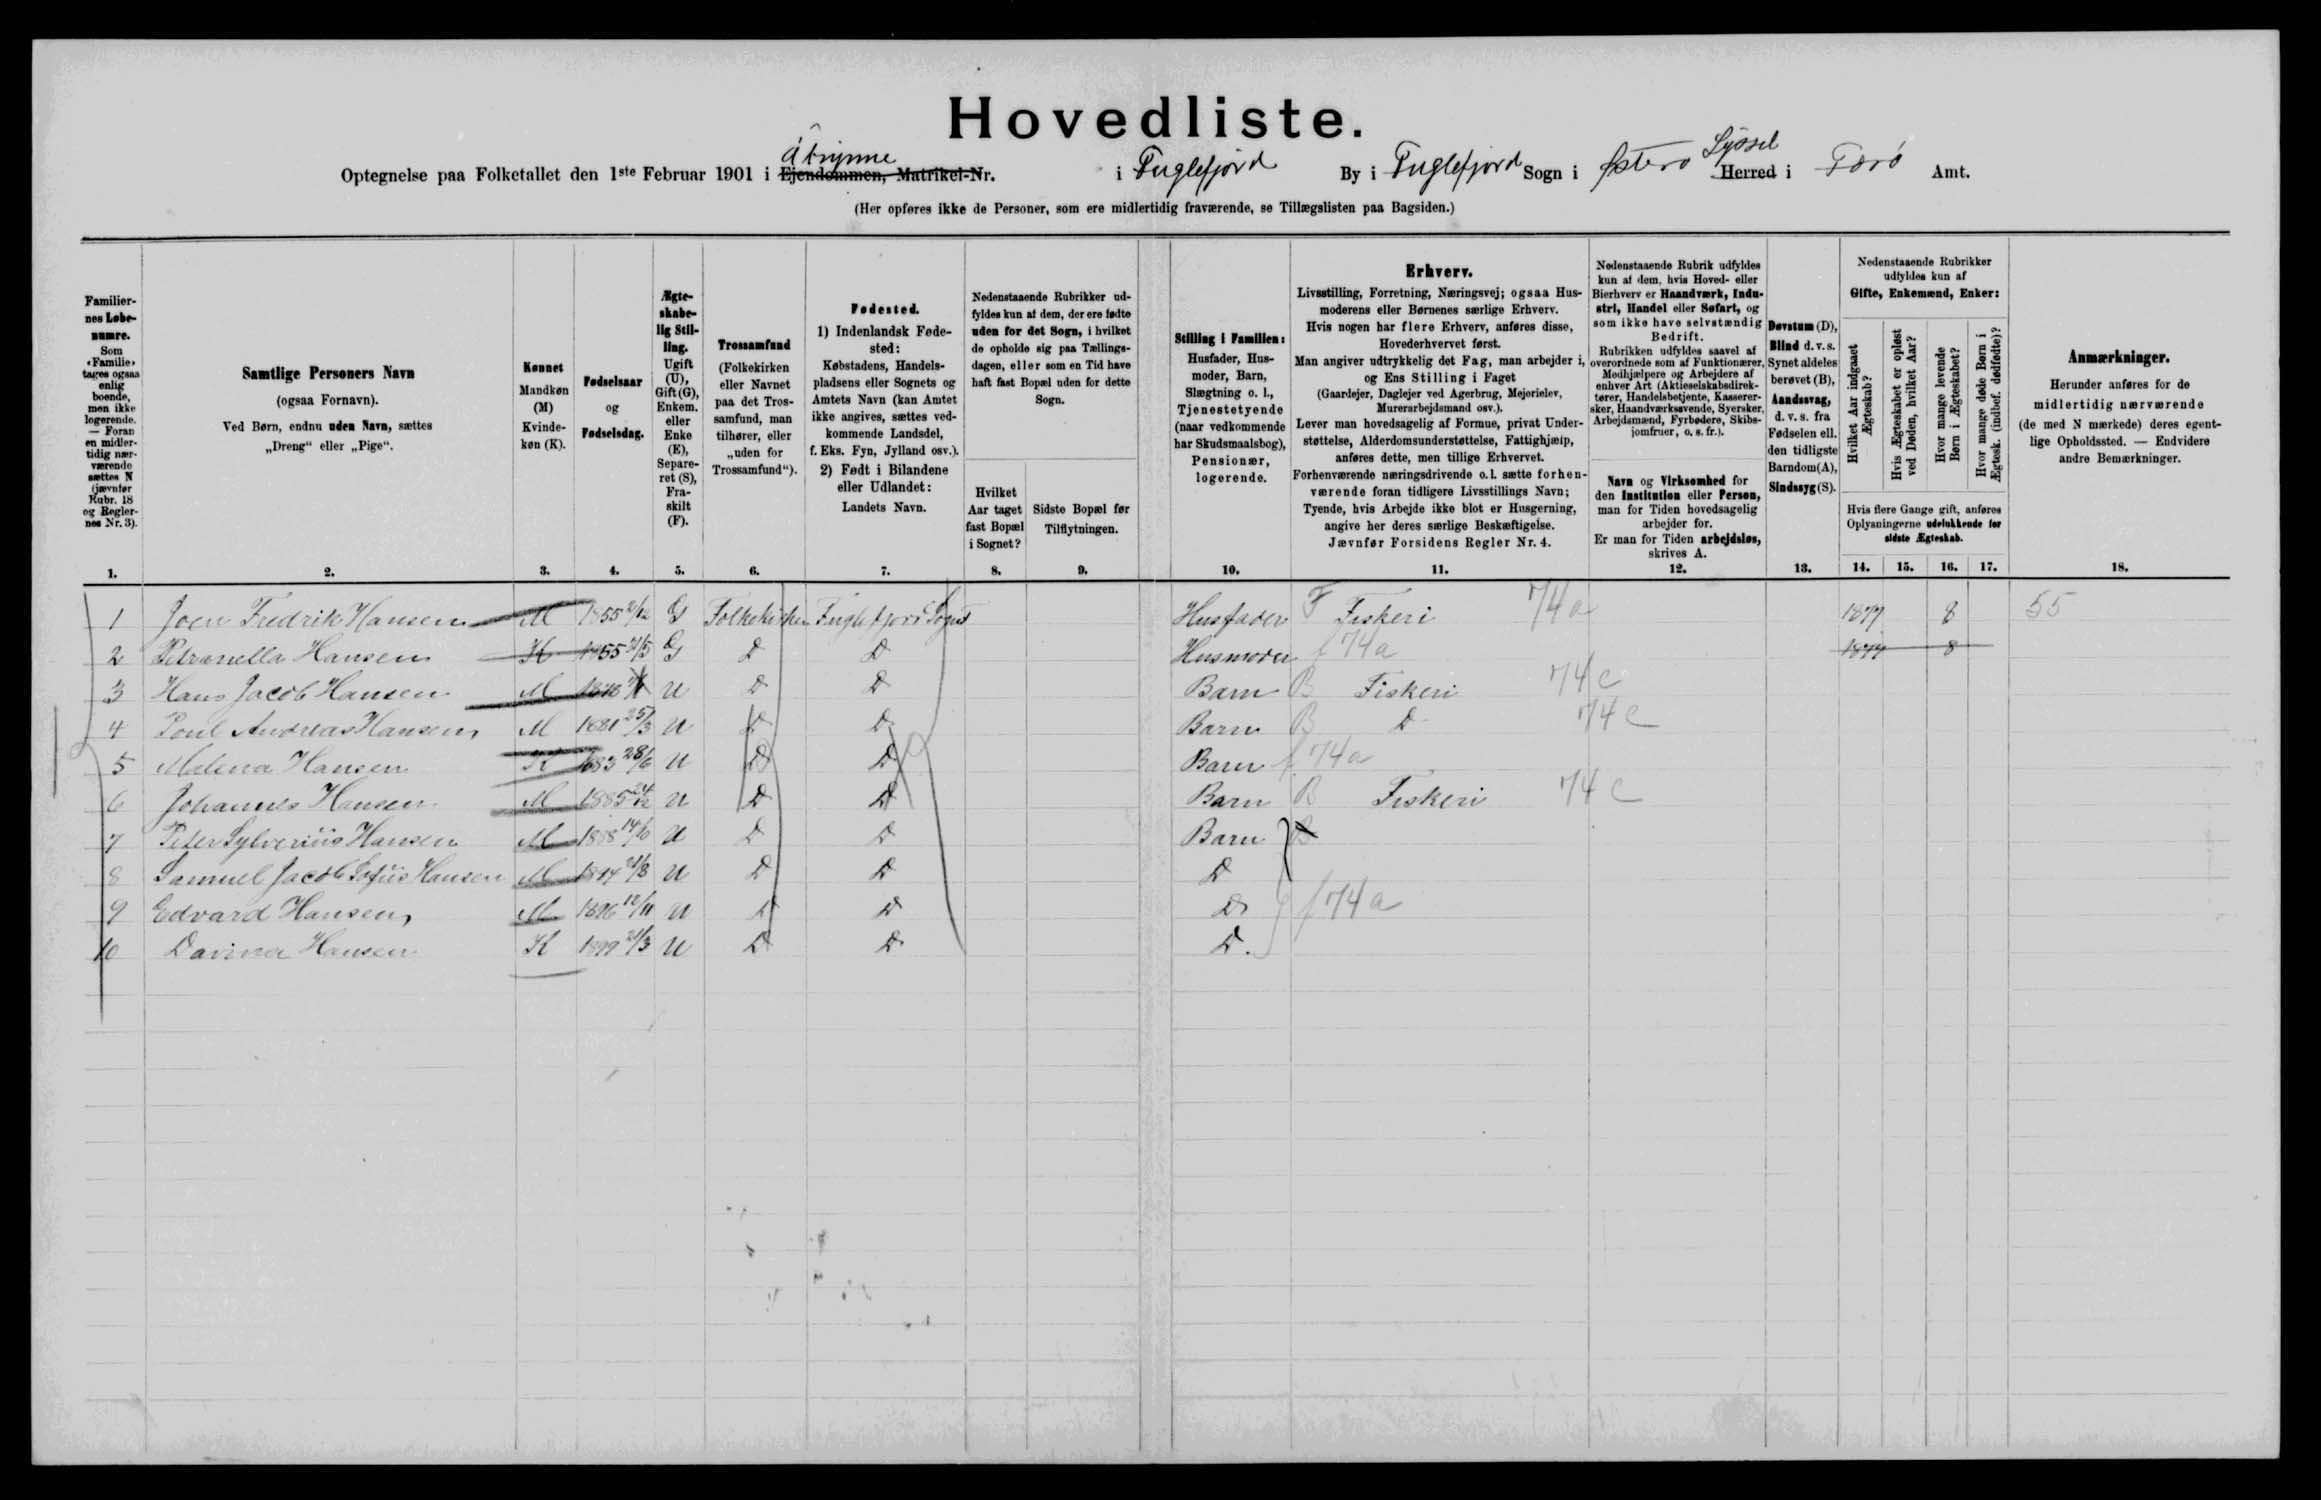 Hovedliste.
Optegnelse paa Folketallet den 1ste Februar 1901 i Ejendommen, Matrikel-Nr. i Fuglefjord By i Fuglefjord Sogn i Østerø Syssel Herred i Færø Amt.
(Her opføres ikke de Personer, som ere midlertidig fraværende, se Tillægslisten paa Bagsiden.)
Familiernes Løbenumre.
Som «Familie» tages ogsaa enlig boende, men ikke logerende. — Foran en midlertidig nærværende sættes N (jævnfør Rubr. 18 og Reglernes Nr. 3).
Samtlige Personers Navn
(ogsaa Fornavn).
Ved Børn, endnu uden Navn, sættes
„Dreng“ eller „Pige“.
Kønnet
Mandkøn
(M)
Kvinde-
køn (K).
Fødselsaar
og
Fødselsdag.
Ægte-
skabe-
lig Stil-
ling.
Ugift
(U),
Gift (G),
Enkem.
eller
Enke
(E),
Separe-
ret (S),
Fra-
skilt
(F).
Trossamfund
(Folkekirken
eller Navnet
paa det Tros-
samfund, man
tilhører, eller
„uden for
Trossamfund“).
Fødested.
1) Indenlandsk Føde-
sted:
Købstadens, Handels-
pladsens eller Sognets og
Amtets Navn (kan Amtet
ikke angives, sættes ved-
kommende Landsdel,
f. Eks. Fyn, Jylland osv.).
2) Født i Bilandene
eller Udlandet:
Landets Navn.
Nedenstaaende Rubrikker ud-
fyldes kun af dem, der ere fødte
uden for det Sogn, i hvilket
de opholde sig paa Tællings-
dagen, eller som en Tid have
haft fast Bopæl uden for dette
Sogn.
Hvilket
Aar taget
fast Bopæl
i Sognet?
Sidste Bopæl før
Tilflytningen.
Stilling i Familien:
Husfader, Hus-
moder, Barn,
Slægtning o. l.,
Tjenestetyende
(naar vedkommende
har Skudsmaalsbog),
Pensionær,
logerende.
Erhverv.
Livsstilling, Forretning, Næringsvej; ogsaa Hus-
moderens eller Børnenes særlige Erhverv.
Hvis nogen har flere Erhverv, anføres disse,
Hovederhvervet først.
Man angiver udtrykkelig det Fag, man arbejder i,
og Ens Stilling i Faget
(Gaardejer, Daglejer ved Agerbrug, Mejerielev,
Murerarbejdsmand osv.).
Lever man hovedsagelig af Formue, privat Under-
støttelse, Alderdomsunderstøttelse, Fattighjælp,
anføres dette, men tillige Erhvervet.
Forhenværende næringsdrivende o. l. sætte forhen-
værende foran tidligere Livsstillings Navn;
Tyende, hvis Arbejde ikke blot er Husgerning,
angive her deres særlige Beskæftigelse.
Jævnfør Forsidens Regler Nr. 4.
Nedenstaaende Rubrik udfyldes
kun af dem, hvis Hoved- eller
Bierhverv er Haandværk, Indu-
stri, Handel eller Søfart, og
som ikke have selvstændig
Bedrift.
Rubrikken udfyldes saavel af
overordnede som af Funktionærer,
Medhjælpere og Arbejdere af
enhver Art (Aktieselskabsdirek-
tører, Handelsbetjente, Kasserer-
sker, Haandværkssvende, Syersker,
Arbejdsmænd, Fyrbødere, Skibs-
jomfruer, o. s. fr.).
Navn og Virksomhed for
den Institution eller Person,
man for Tiden hovedsagelig
arbejder for.
Er man for Tiden arbejdsløs,
skrives A.
Døvstum (D),
Blind d. v. s.
Synet aldeles
berøvet (B),
Aandssvag,
d. v. s. fra
Fødselen ell.
den tidligste
Barndom (A),
Sindssyg (S).
Nedenstaaende Rubrikker
udfyldes kun af
Gifte, Enkemænd, Enker:
Hvilket Aar indgaaet Ægteskab?
Hvis Ægteskabet er opløst ved Døden, hvilket Aar?
Hvor mange levende Børn i Ægteskabet?
Hvor mange døde Børn i Ægtesk. (indbef. dødfødte)?
Hvis flere Gange gift, anføres
Oplysningerne udelukkende for
sidste Ægteskab.
Anmærkninger.
Herunder anføres for de
midlertidig nærværende
(de med N mærkede) deres egent-
lige Opholdssted. — Endvidere
andre Bemærkninger.
1. 2. 3. 4. 5. 6. 7. 8. 9. 10. 11. 12. 13. 14. 15. 16. 17. 18.
1 Joen Fredrik Hansen M 1855 G Folkekirken Fuglefjord Sogn Husfader F Fiskeri 74a 1877 8 55
2 Petranella Hansen K 1855 G D D Husmoder f 74a 1877 8
3 Hans Jacob Hansen M U D D Barn B Fiskeri 74c
4 Poul Andreas Hansen M 1881 25/3 U D D Barn B D 74c
5 Malena Hansen K 1883 28/6 U D D Barn f 74a
6 Johannes Hansen M 1885 U D D Barn B Fiskeri 74c
7 Peter Sylverius Hansen M 1888 14/10 U D D Barn B
8 Samuel Jacob Sofus Hansen M 21/3 U D D D
9 Edvard Hansen M 1896 U D D D f 74a
10 Davina Hansen K 1899 21/3 U D D D.